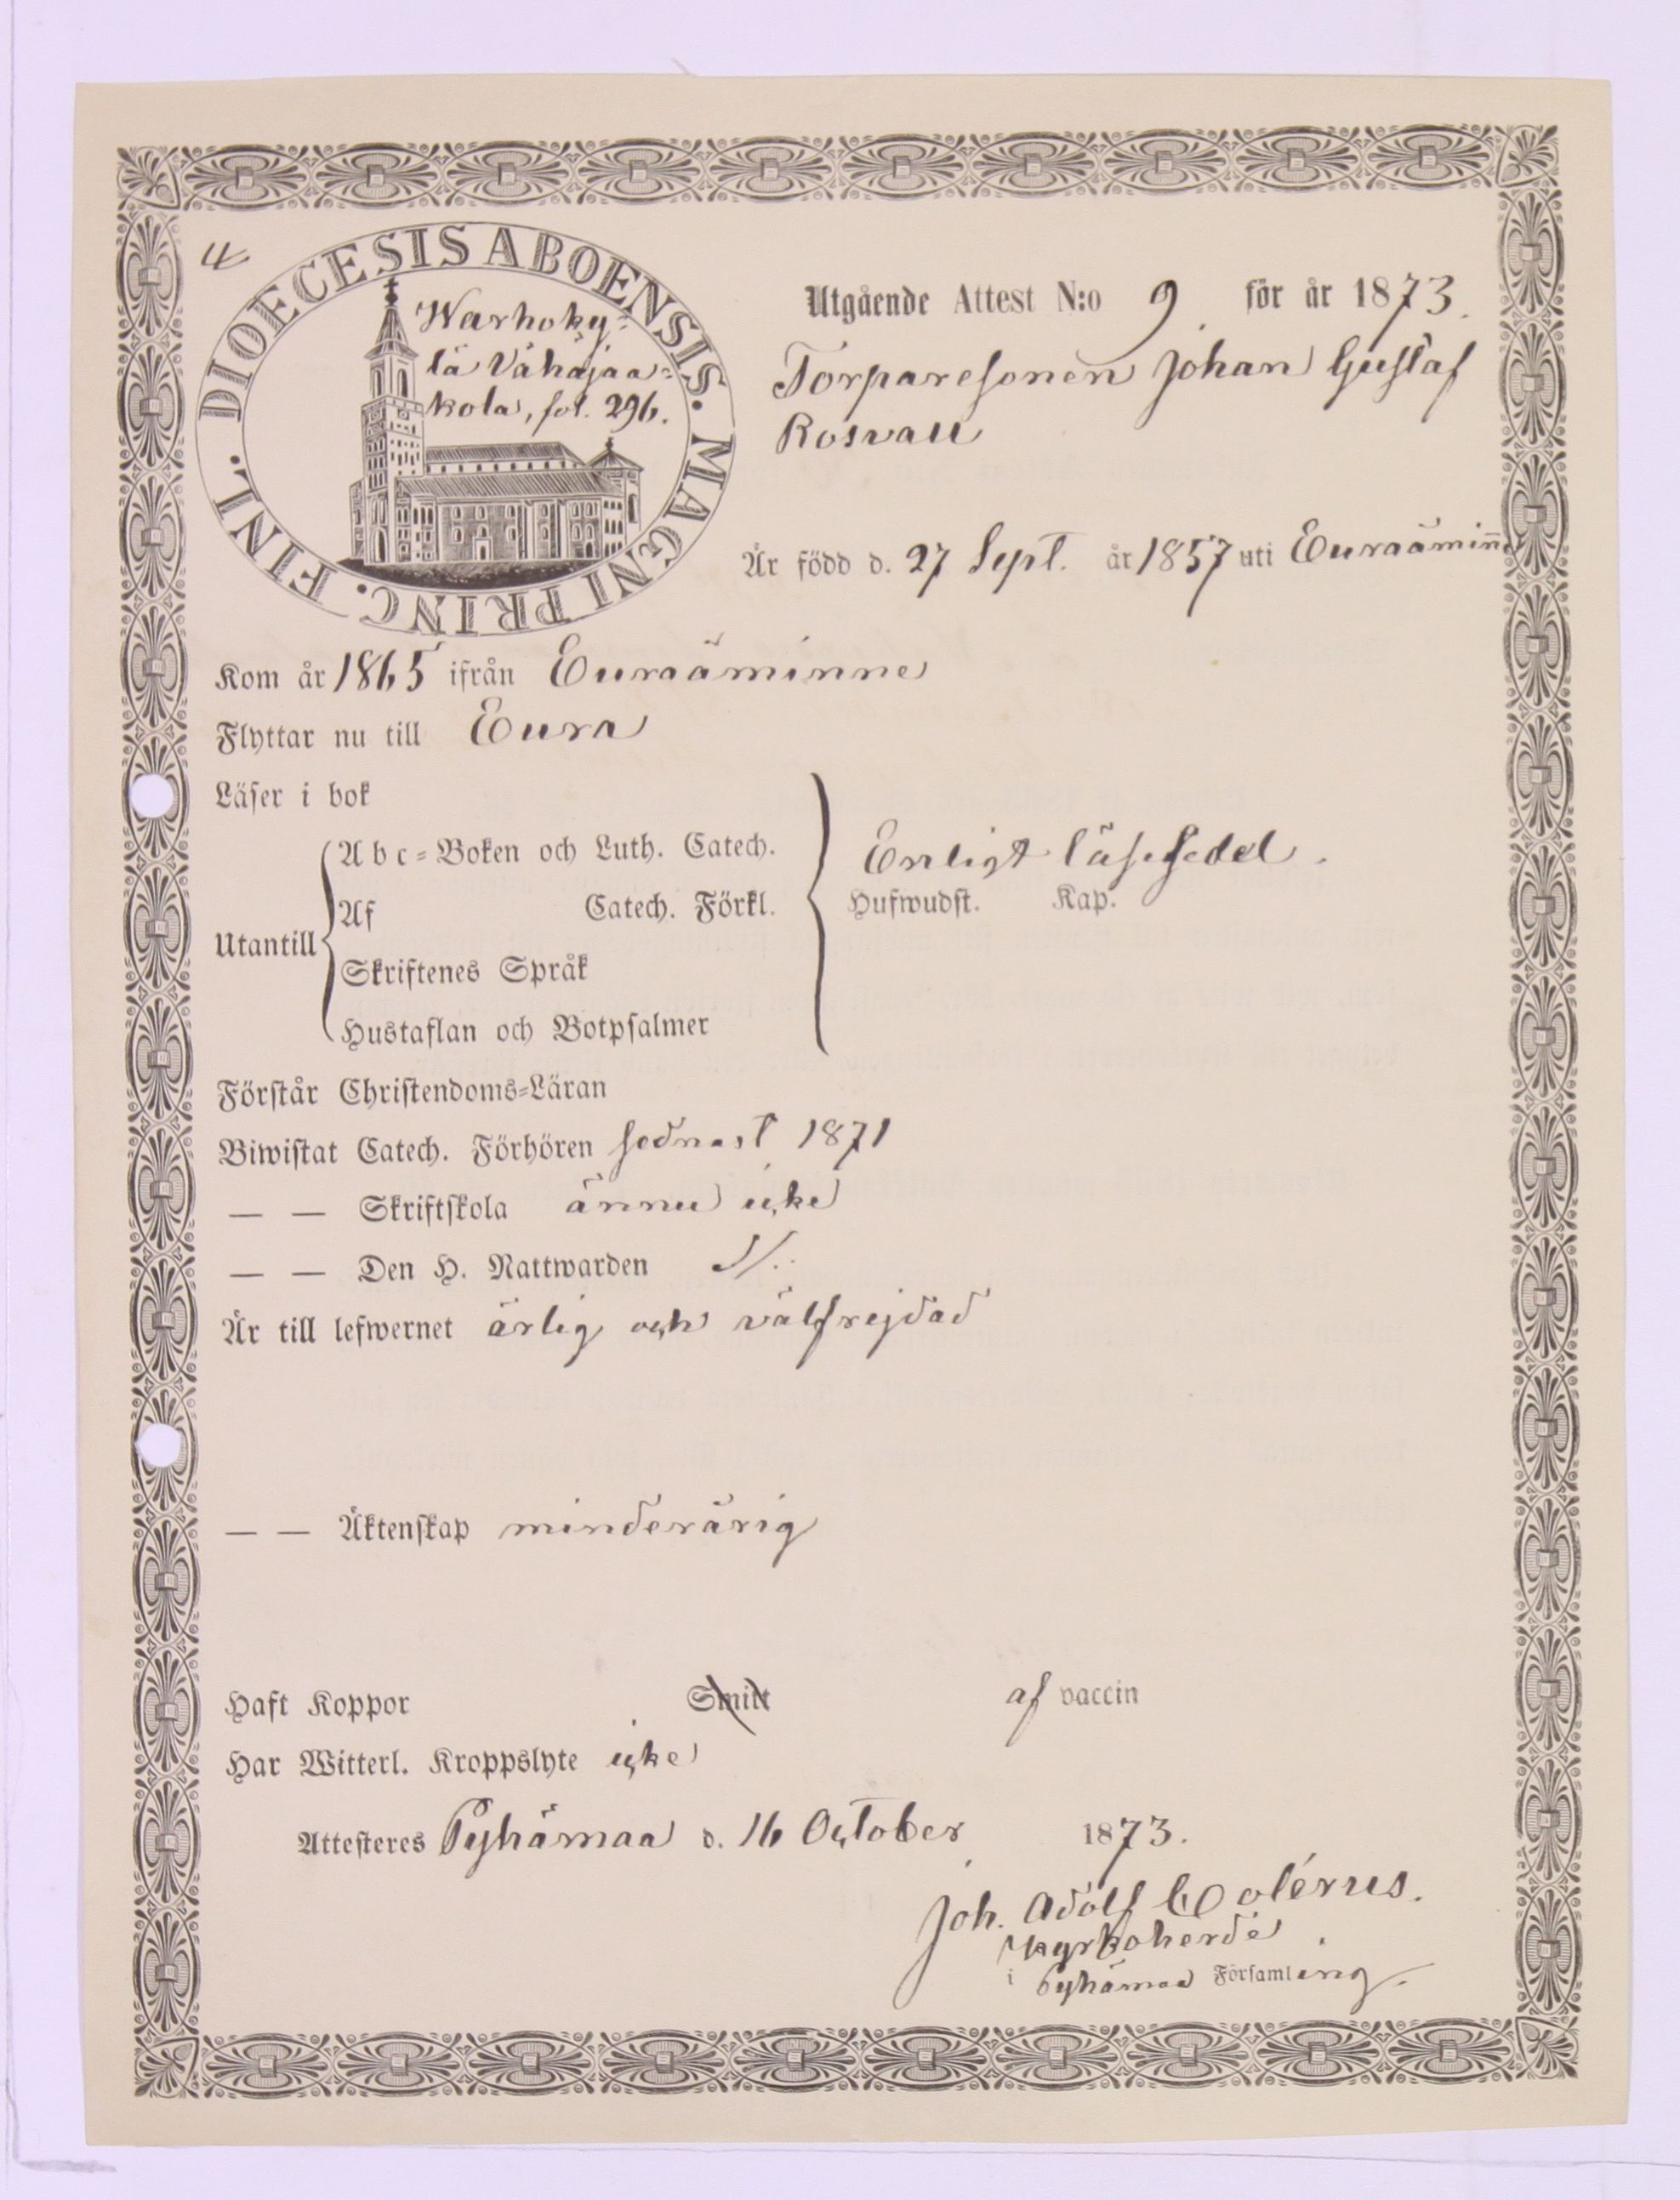 4
DIOECESIS ABOENSIS. MAGNI PRINC. FINL.
Warhoky=
lä Vähäjaa=
kola, fol. 296.
Utgående Attest N:o 9. för år 1873.
Torparesonen Johan Gustaf
Rosvall
Är född d. 27 Sept. år 1857 uti Euraåminne
Kom år 1865 ifrån Euraåminne
Flyttar nu till Eura
Läser i bok
Utantill
Abc=Boken och Luth. Catech.
Enligt läsesedel.
Af Catech. Förkl. Hufwudst. Kap.
Skriftenes Språk
Hustaflan och Botpsalmer
Förstår Christendoms=Läran
Biwistat Catech. Förhören sednast 1871
— — Skriftskola ännu icke
— — Den H. Nattwarden
Är till lefwernet ärlig och välfrejdad
— — Äktenskap minderårig
Haft Koppor Smitt af vaccin
Har Witterl. Kroppslyte icke
Attesteres Pyhämaa d. 16 October 1873.
Joh. Adolf Colérus.
Kyrkoherde
i Pyhämaa Församling.